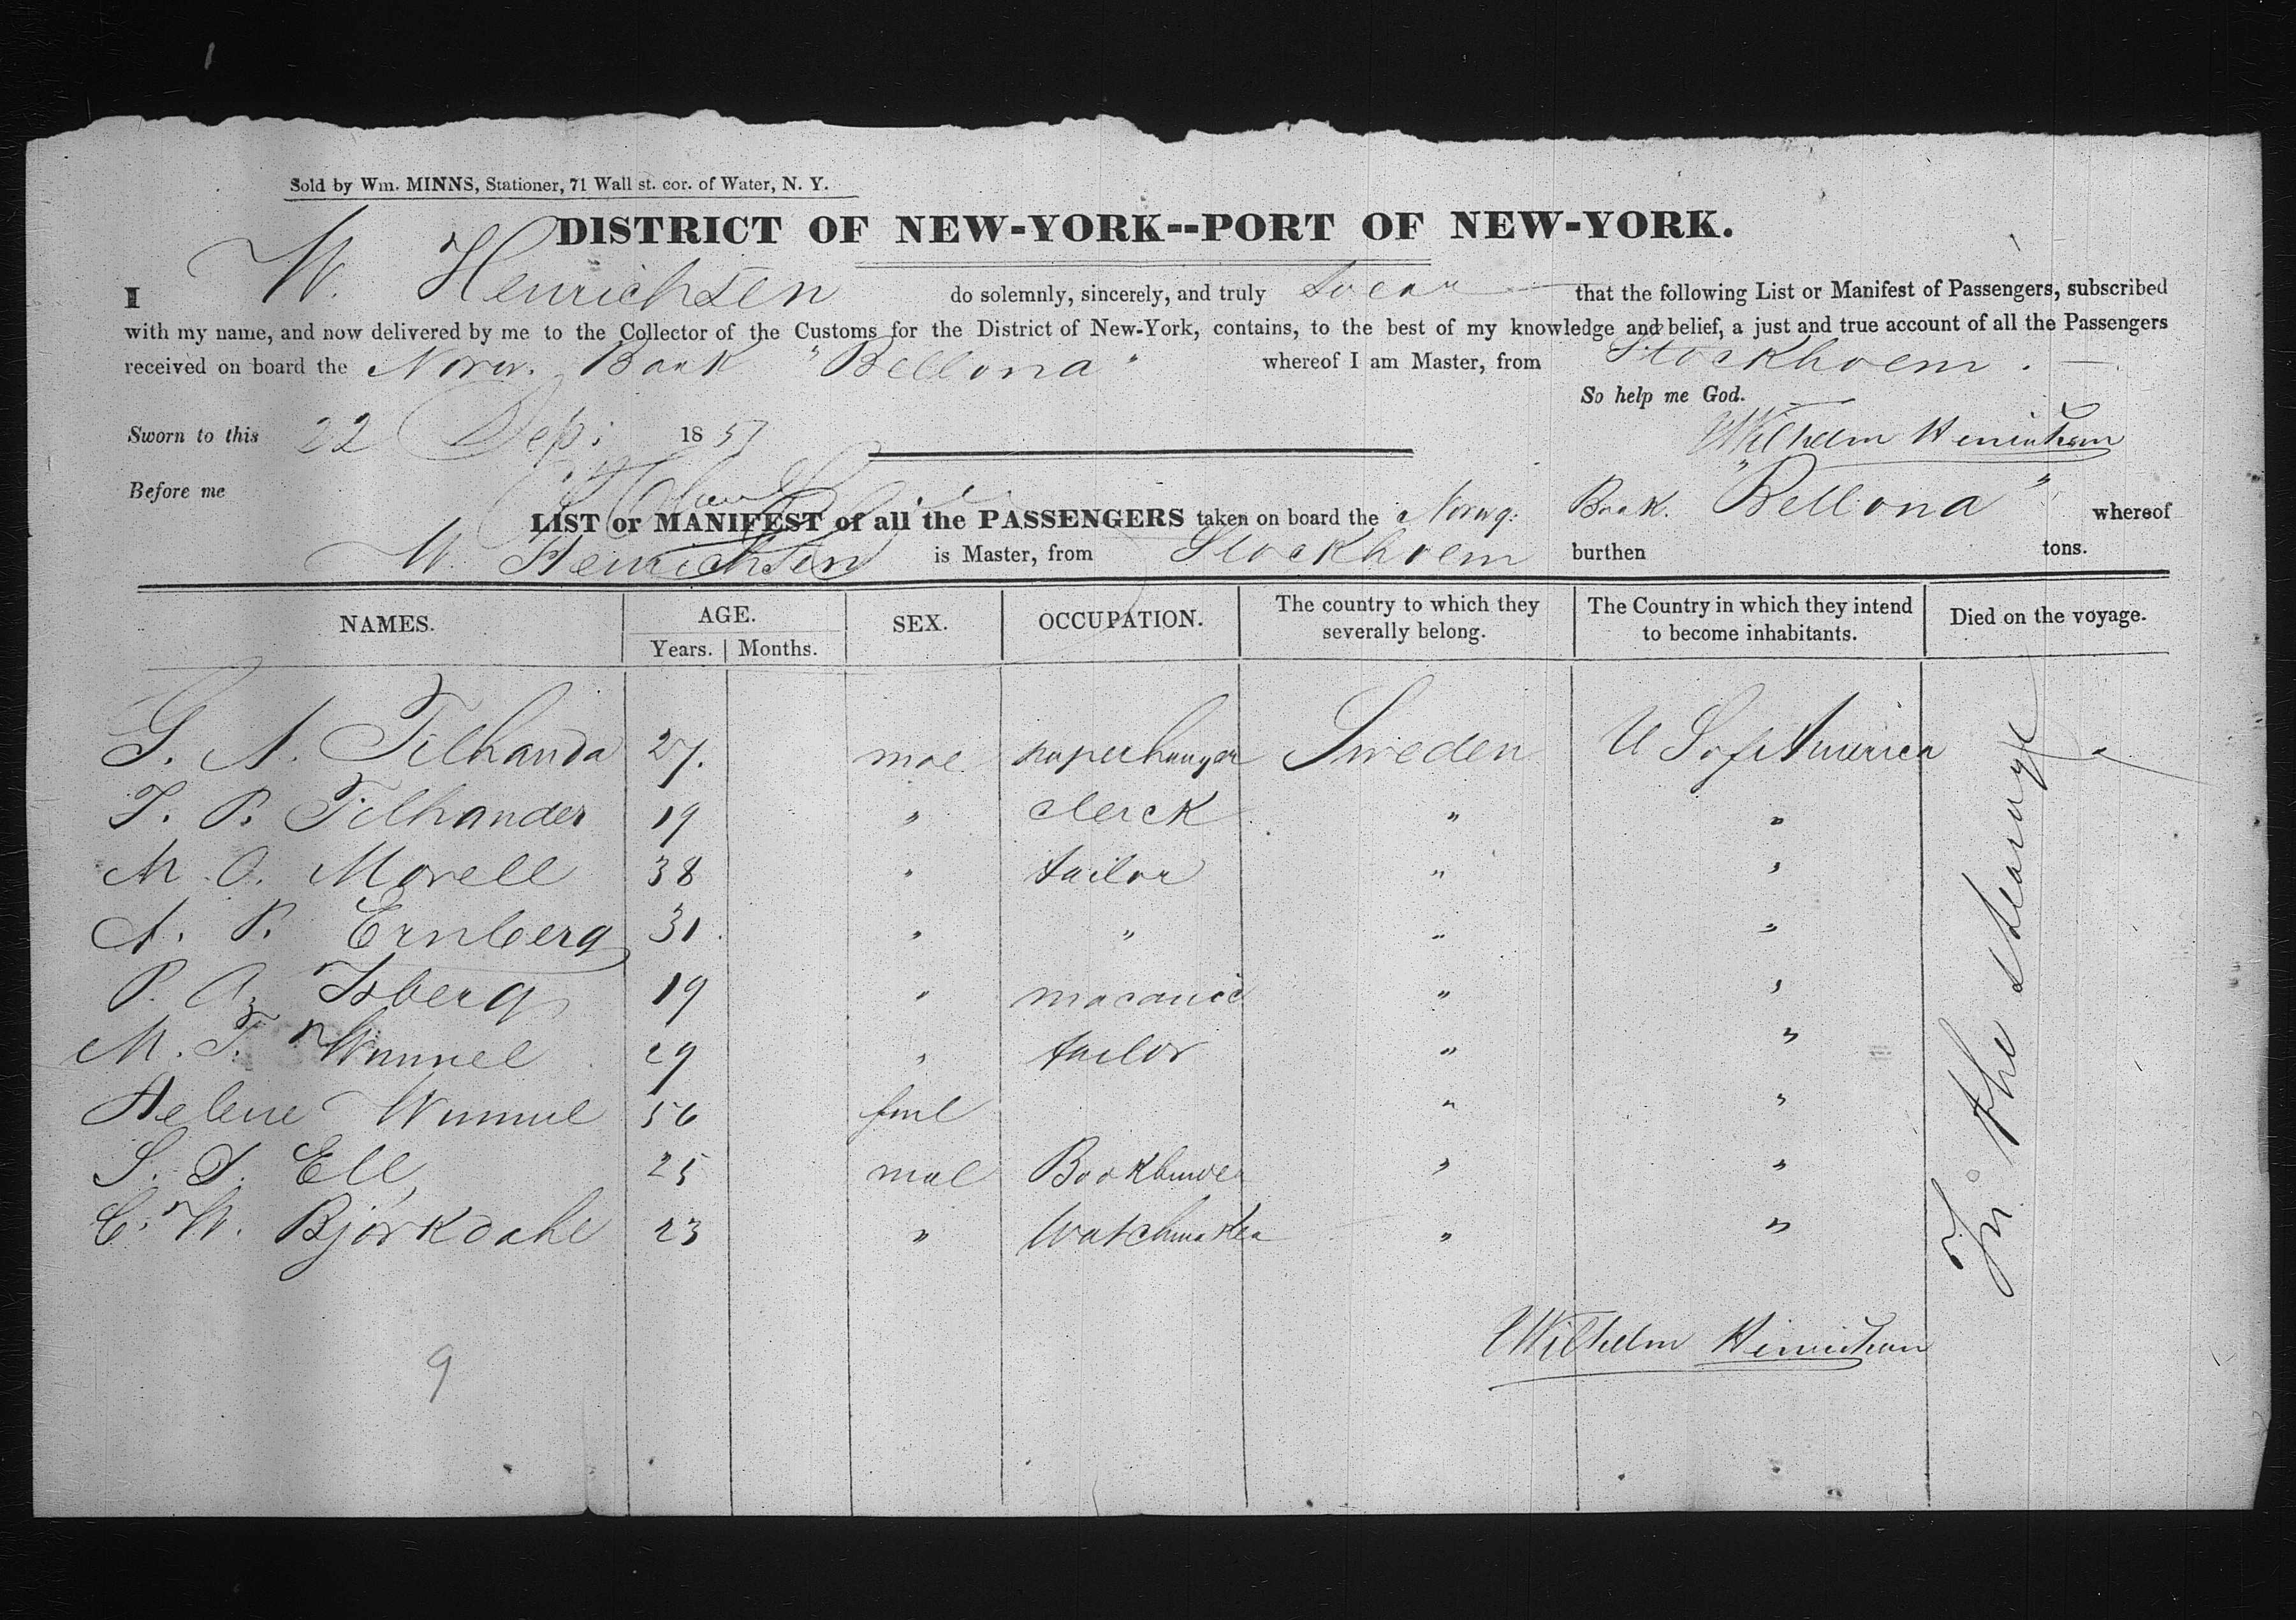 Sold by Wm. MINNS, Stationer, 71 Wall st. cor. of Water, N. Y.
DISTRICT OF NEW-YORK--PORT OF NEW-YORK.
I W. Henrichsen do solemnly, sincerely, and truly swear that the following List or Manifest of Passengers, subscribed
with my name, and now delivered by me to the Collector of the Customs for the District of New-York, contains, to the best of my knowledge and belief, a just and true account of all the Passengers
received on board the Norw. Bark "Bellona" whereof I am Master, from Stockholm.
So help me God.
Sworn to this 22 Sep: 1857 Wilhelm Henrichsen
Before me
LIST or MANIFEST of all the PASSENGERS taken on board the Norwg: Bark. "Bellona" whereof
W. Henrichsen is Master, from Stockholm burthen tons.
NAMES. AGE. SEX. OCCUPATION. The country to which they severally belong. The Country in which they intend to become inhabitants. Died on the voyage.
Years. Months.
G. A. 27. mal paperhanger Sweden U S of America
P. Filhander 19 " clerck " "
M. O. Morell 38 " tailor " "
A. P. Ernberg 31. " " " "
P. A. Isberg 19 " macanic " "
M. F. 29 " tailor " "
Helene 56 feml " "
S. Ell 25 mal Bookbinder " "
C. W. Bjorkdahl 23 " Watchmaker " "
In the stearage
Wilhelm Henrichsen
9